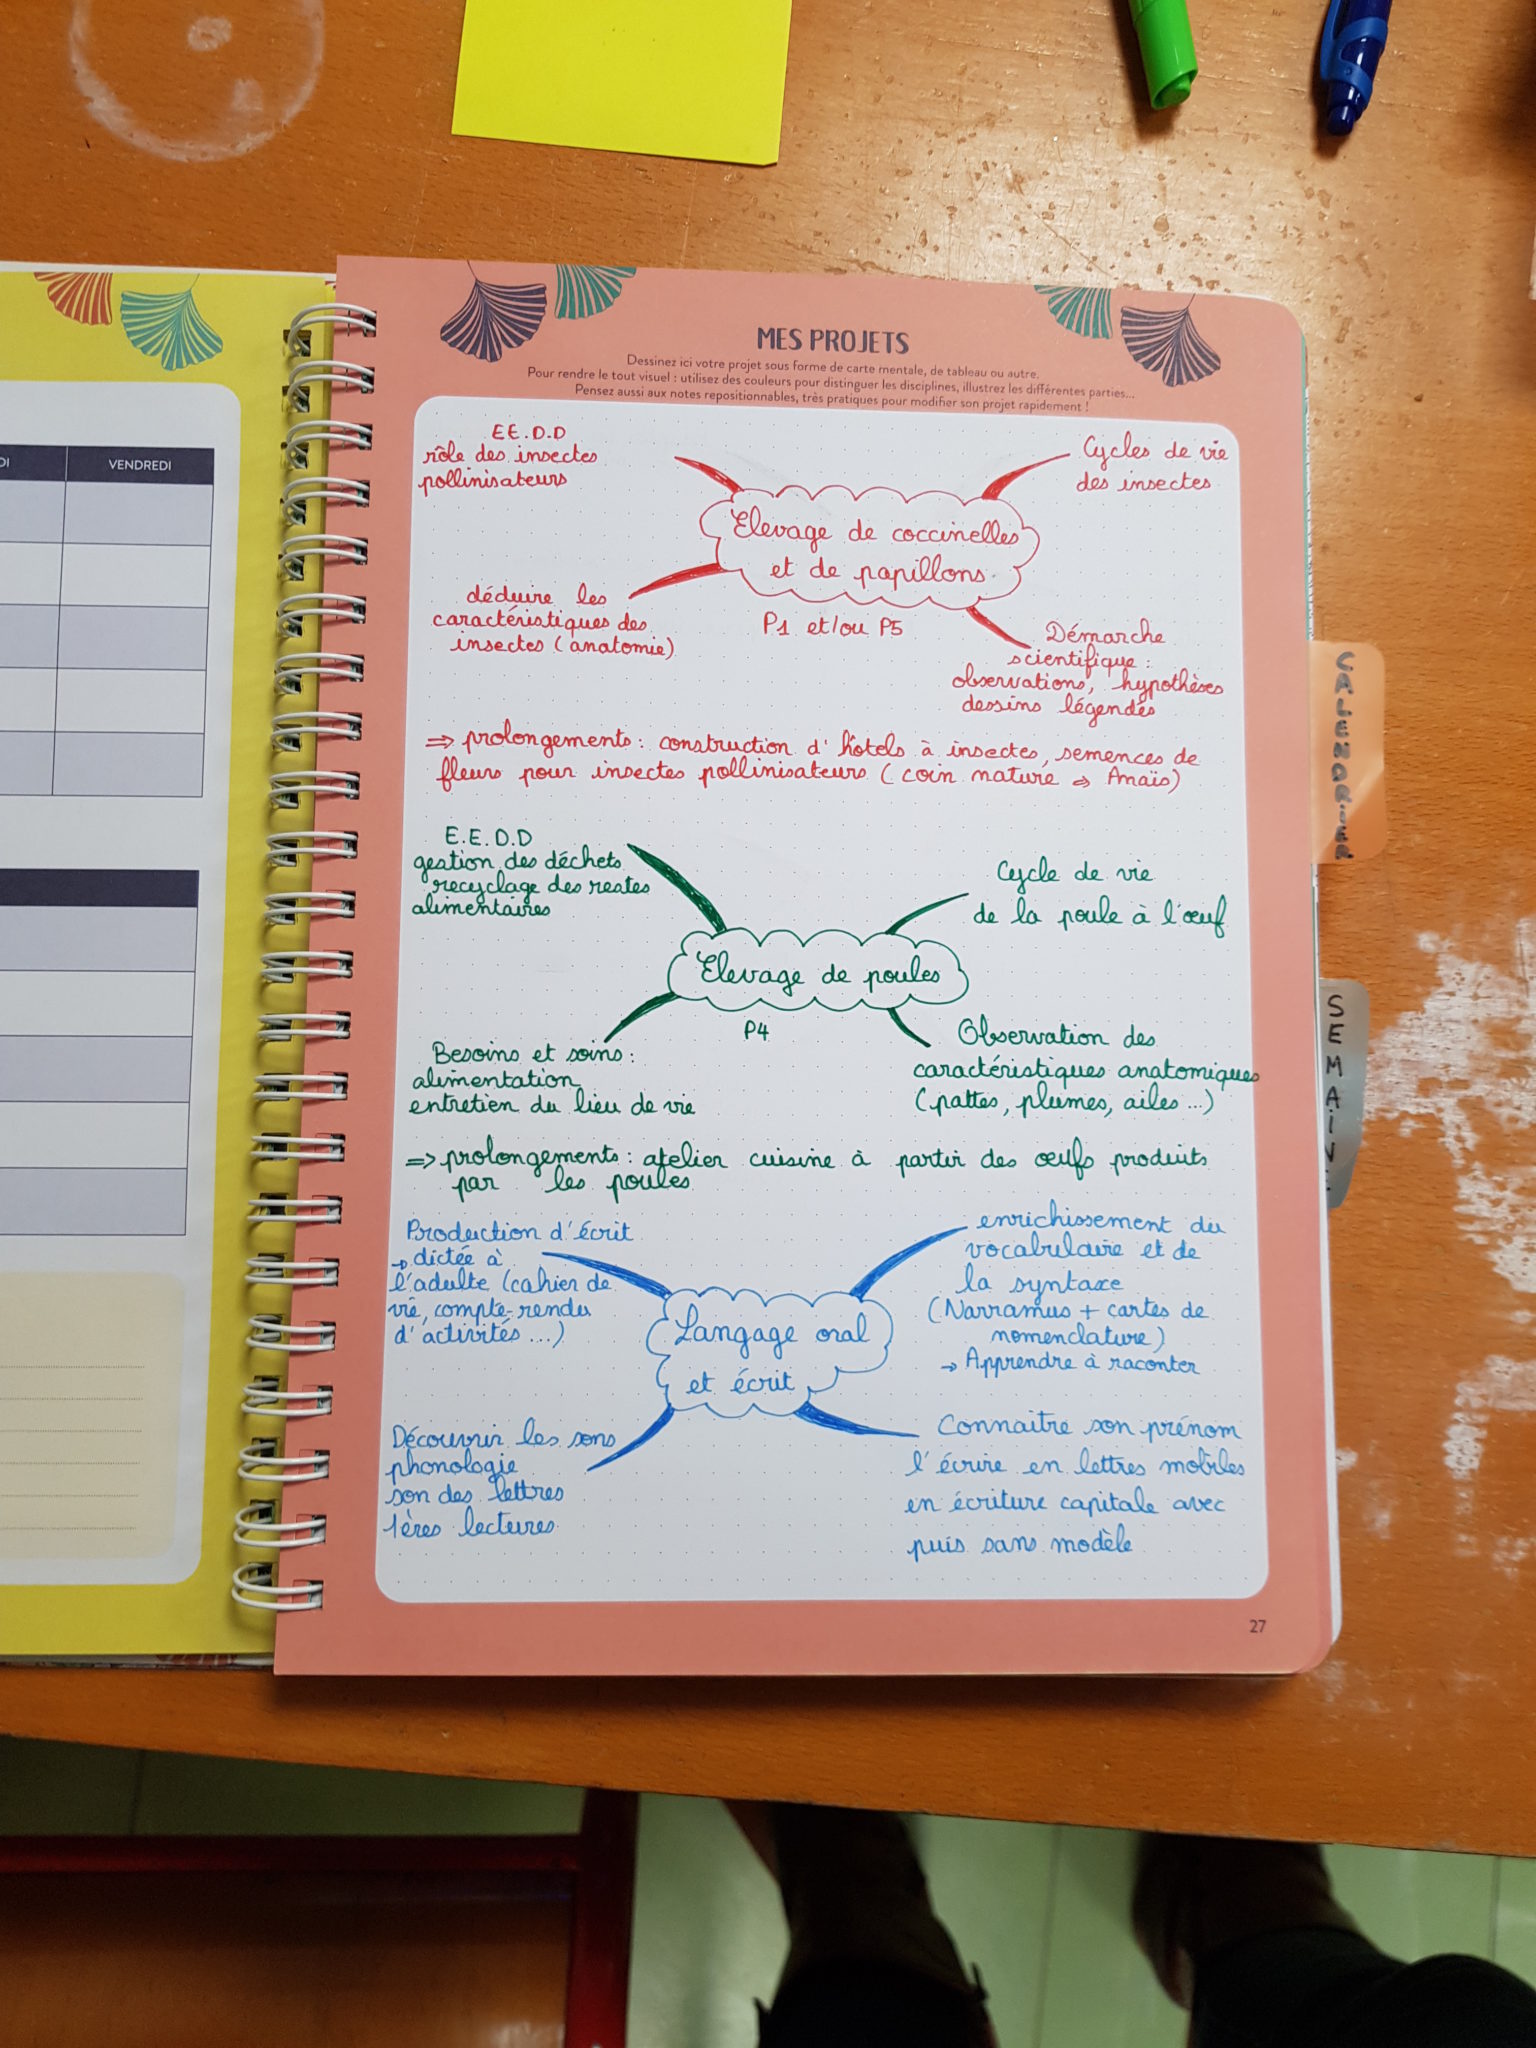 DI
VENDREDI
MES PROJETS
Dessinez ici votre projet sous forme de carte mentale, de tableau ou autre.
Pour rendre le tout visuel : utilisez des couleurs pour distinguer les disciplines, illustrez les différentes parties...
Pensez aussi aux notes repositionnables, très pratiques pour modifier son projet rapidement !
E.E.D.D
rôle des insectes
pollinisateurs
Cycles de vie
des insectes
Elevage de coccinelles
et de papillons
P1 et/ou P5
déduire les
caractéristiques des
insectes (anatomie)
Démarche
scientifique :
observations, hypothèses
dessins légendés
⇒ prolongements : construction d'hôtels à insectes, semences de
fleurs pour insectes pollinisateurs (coin nature ⇒ Anaïs)
E.E.D.D
gestion des déchets
recyclage des restes
alimentaires
Cycle de vie
de la poule à l'œuf
Elevage de poules
P4
Besoins et soins :
alimentation
entretien du lieu de vie
Observation des
caractéristiques anatomiques
(pattes, plumes, ailes ...)
⇒ prolongements : atelier cuisine à partir des œufs produits
par les poules
Production d'écrit
→ dictée à
l'adulte (cahier de
vie, compte-rendu
d'activités ...)
enrichissement du
vocabulaire et de
la syntaxe
(Narramus + cartes de
nomenclature)
→ Apprendre à raconter
Langage oral
et écrit
Découvrir les sons
phonologie
son des lettres
1ères lectures
Connaitre son prénom
l'écrire en lettres mobiles
en écriture capitale avec
puis sans modèle
27
CALENDRIER
SEMAIN